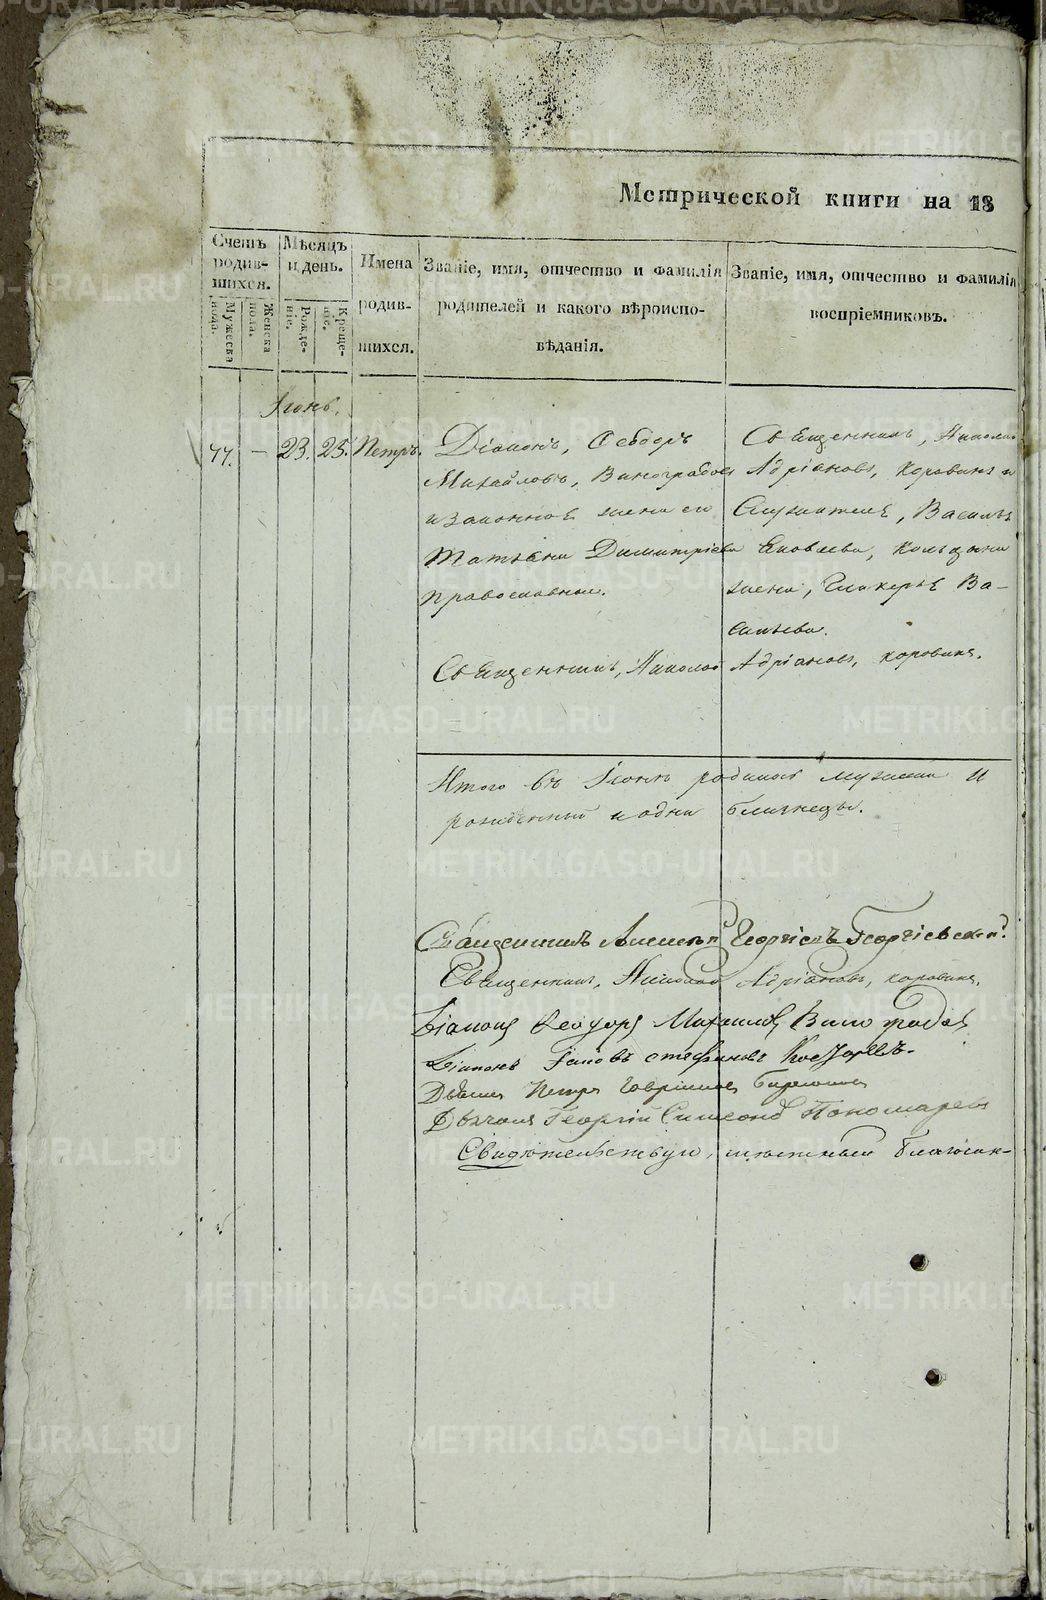 Метрической книги на 18
Счетъ родив-шихся.
Мужеска пола.
Женска пола.
Мѣсяцъ и день.
Рожде-ніе.
Креще-ніе.
Имена родив-шихся.
Званіе, имя, отчество и фамилія родителей и какого вѣроиспо-вѣданія.
Званіе, имя, отчество и фамилія воспріемниковъ.
Іюнь.
77. — 23. 25. Петръ.
Діаконъ, Ѳеодоръ
Михайловъ, Виноградовъ
и законная жена его
Татьяна Димитріева
православные.
Священникъ, Николай
Адріановъ, Коровинъ и
Служителя, Василья
Яковлева, Кользина
жена, Гликерья Ва-
сильева.
Священникъ, Николай Адріановъ, Коровинъ.
Итого въ Іюнѣ родилось мужеска 11
рожденный и одни близнецы.
Священникъ Алексѣй Георгіевъ Георгіевскій.
Священникъ, Николай Адріановъ, Коровинъ.
Діаконъ Ѳеодоръ Михаиловъ Виноградовъ
Діаконъ Іаковъ Стефановъ Косуревъ.
Дьячекъ Петръ Гавриловъ
Дьячекъ Георгій Симеоновъ Пономаревъ
Свидѣтельствую, мѣстный Благочин-
METRIKI.GASO-URAL.RU